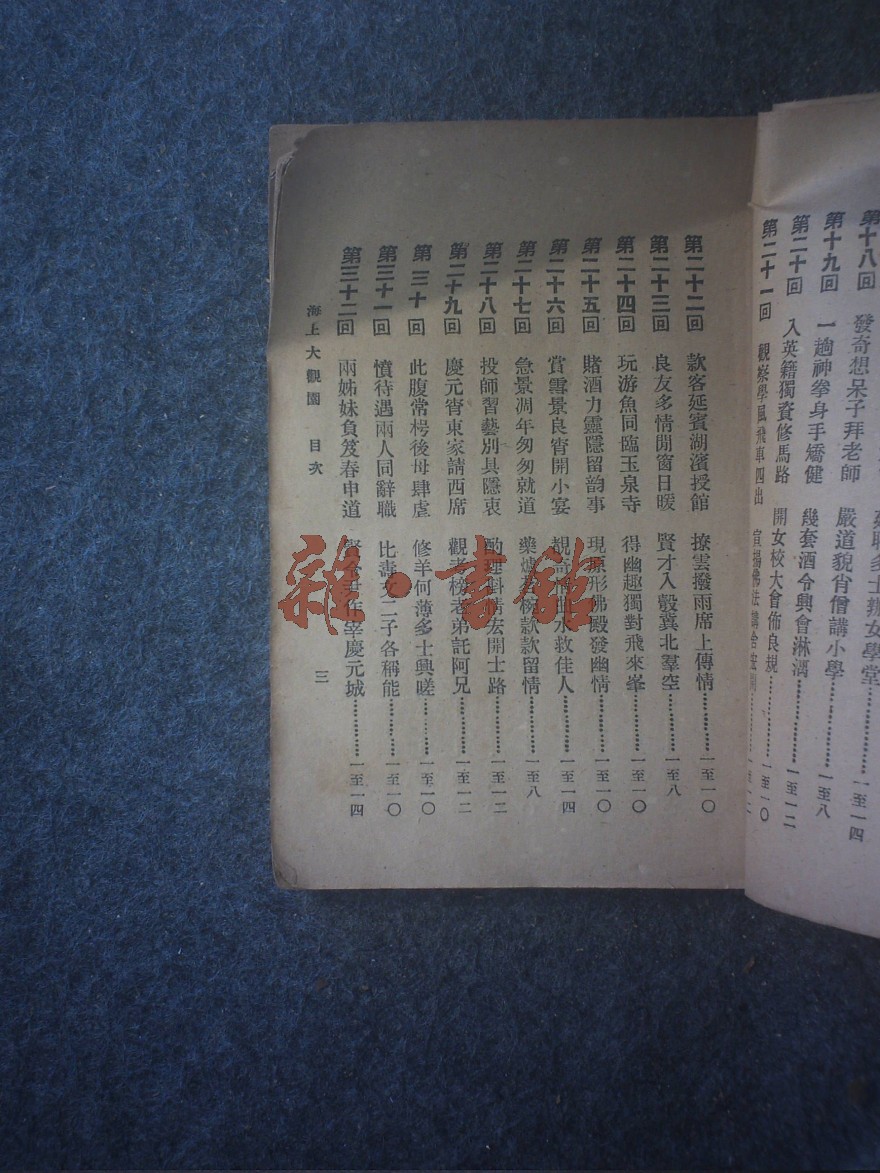 第十八回　發奇想呆子拜老師　聘多士辦女學堂…………一至一四
第十九回　一趟神拳身手矯健　嚴道貌肖僧講小學…………一至八
第二十回　入英籍獨資修馬路　幾套酒令興會淋漓…………一至一二
第二十一回　觀察學風飛車四出　開女校大會佈良規…………一至一〇
宣揚佛法講舍宏開…………一至一二
第二十二回　款客延賓湖濱授館　撩雲撥雨席上傳情…………一至一〇
第二十三回　良友多情閒窗日暖　賢才入彀冀北羣空…………一至八
第二十四回　玩游魚同臨玉泉寺　得幽趣獨對飛來峯…………一至一〇
第二十五回　賭酒力靈隱留韵事　現原形佛殿發幽情…………一至一〇
第二十六回　賞雪景良宵開小宴　親奇醫血水救佳人…………一至一四
第二十七回　急景凋年匆匆就道　藥爐茗椀款款留情…………一至八
第二十八回　投師習藝別具隱衷　酌理斟情宏開士路…………一至一二
第二十九回　慶元宵東家請西席　觀考榜老弟託阿兄…………一至一二
第三十回　此腹常枵後母肆虐　修羊何薄多士興嗟…………一至一〇
第三十一回　憤待遇兩人同辭職　比壽文二子各稱能…………一至一〇
第三十二回　兩姊妹負笈春申道　賢令尹作宰慶元城…………一至一四
海上大觀園　目次　三
雜·書館